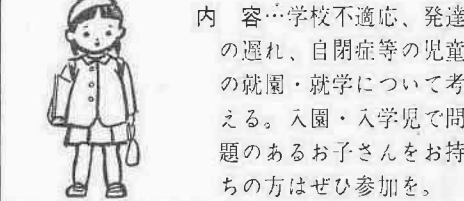 内　容…学校不適応、発達
の遅れ、自閉症等の児童
の就園・就学について考
える。入園・入学児で問
題のあるお子さんをお持
ちの方はぜひ参加を。